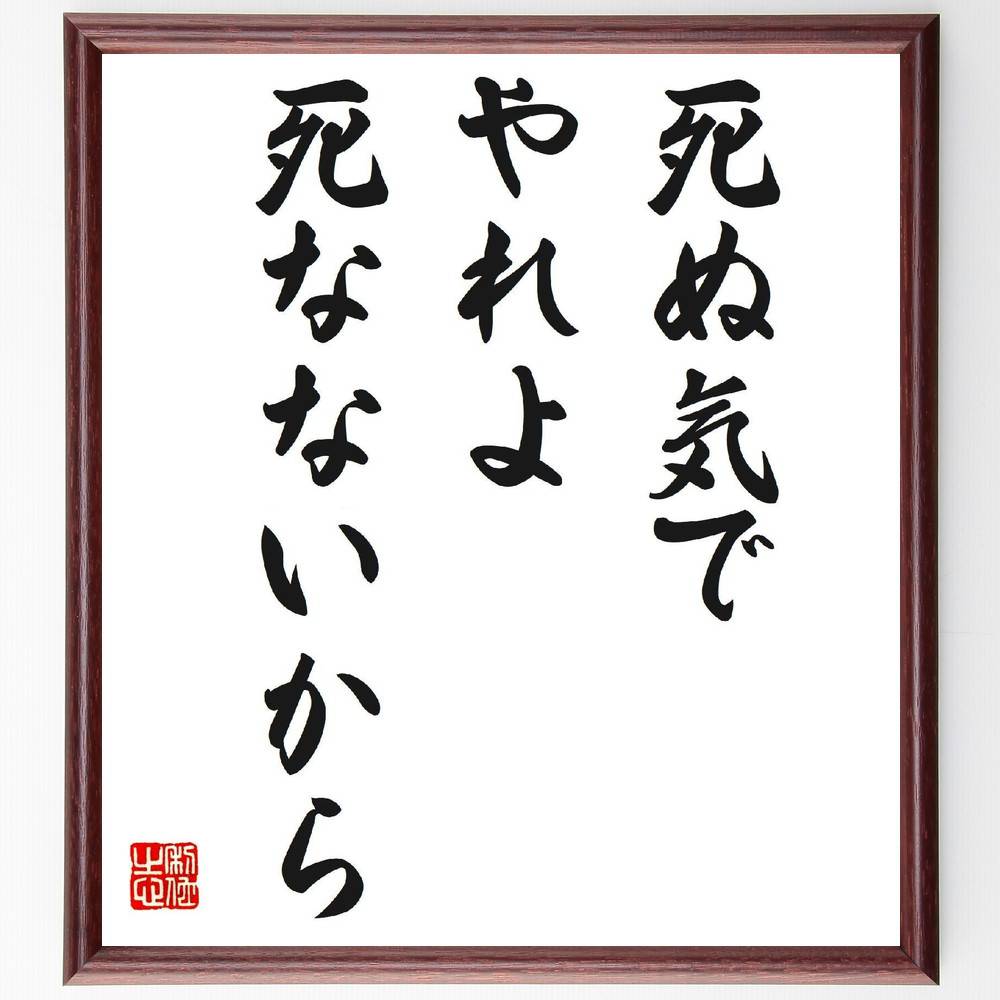 死ぬ気で
やれよ
死なないから